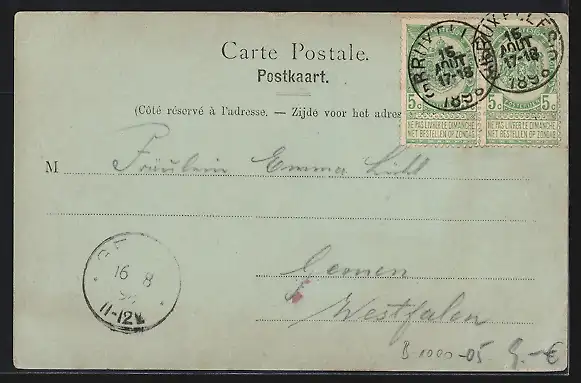 Carte Postale.
Postkaart.
(Côté réservé à l'adresse. — Zijde voor het adres
BRUXELLES
15
AOUT
17-18
189
BRUXELLES
15
AOUT
17-18
189
5c 5c 5c 5c
NE PAS LIVRER LE DIMANCHE
NIET BESTELLEN OP ZONDAG
NE PAS LIVRER LE DIMANCHE
NIET BESTELLEN OP ZONDAG
M Fräulein Emma
16 8
11-12V
Gemen
Westfalen
B 1000-05 9.-€